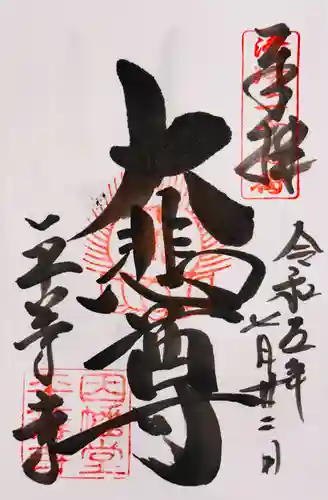 奉拝
令和五年
七月廿二日
大悲尊
平等寺
因幡堂
平等寺